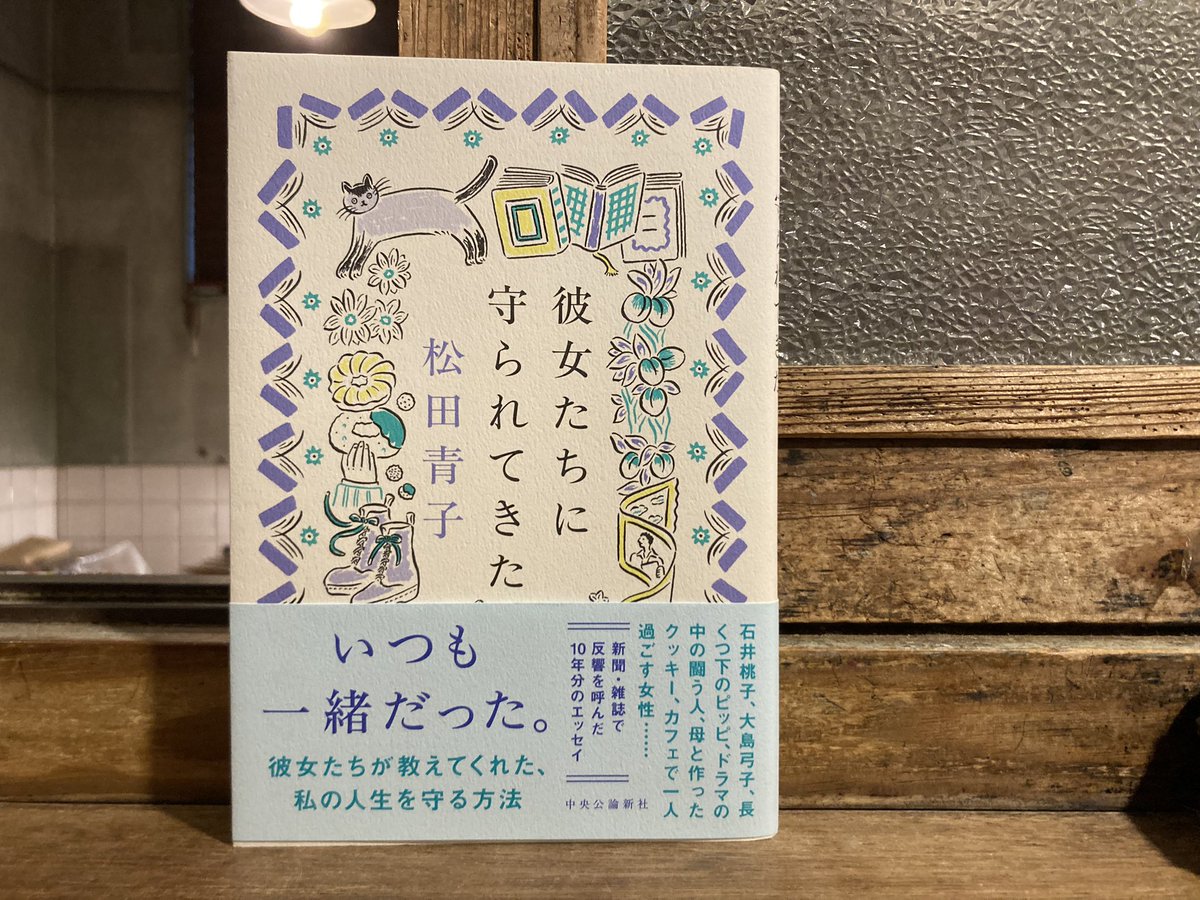 彼女たちに
守られてきた
松田青子
石井桃子、大島弓子、長
くつ下のピッピ、ドラマの
中の闘う人、母と作った
クッキー、カフェで一人
過ごす女性……
新聞・雑誌で
反響を呼んだ
10年分のエッセイ
中央公論新社
いつも
一緒だった。
彼女たちが教えてくれた、
私の人生を守る方法